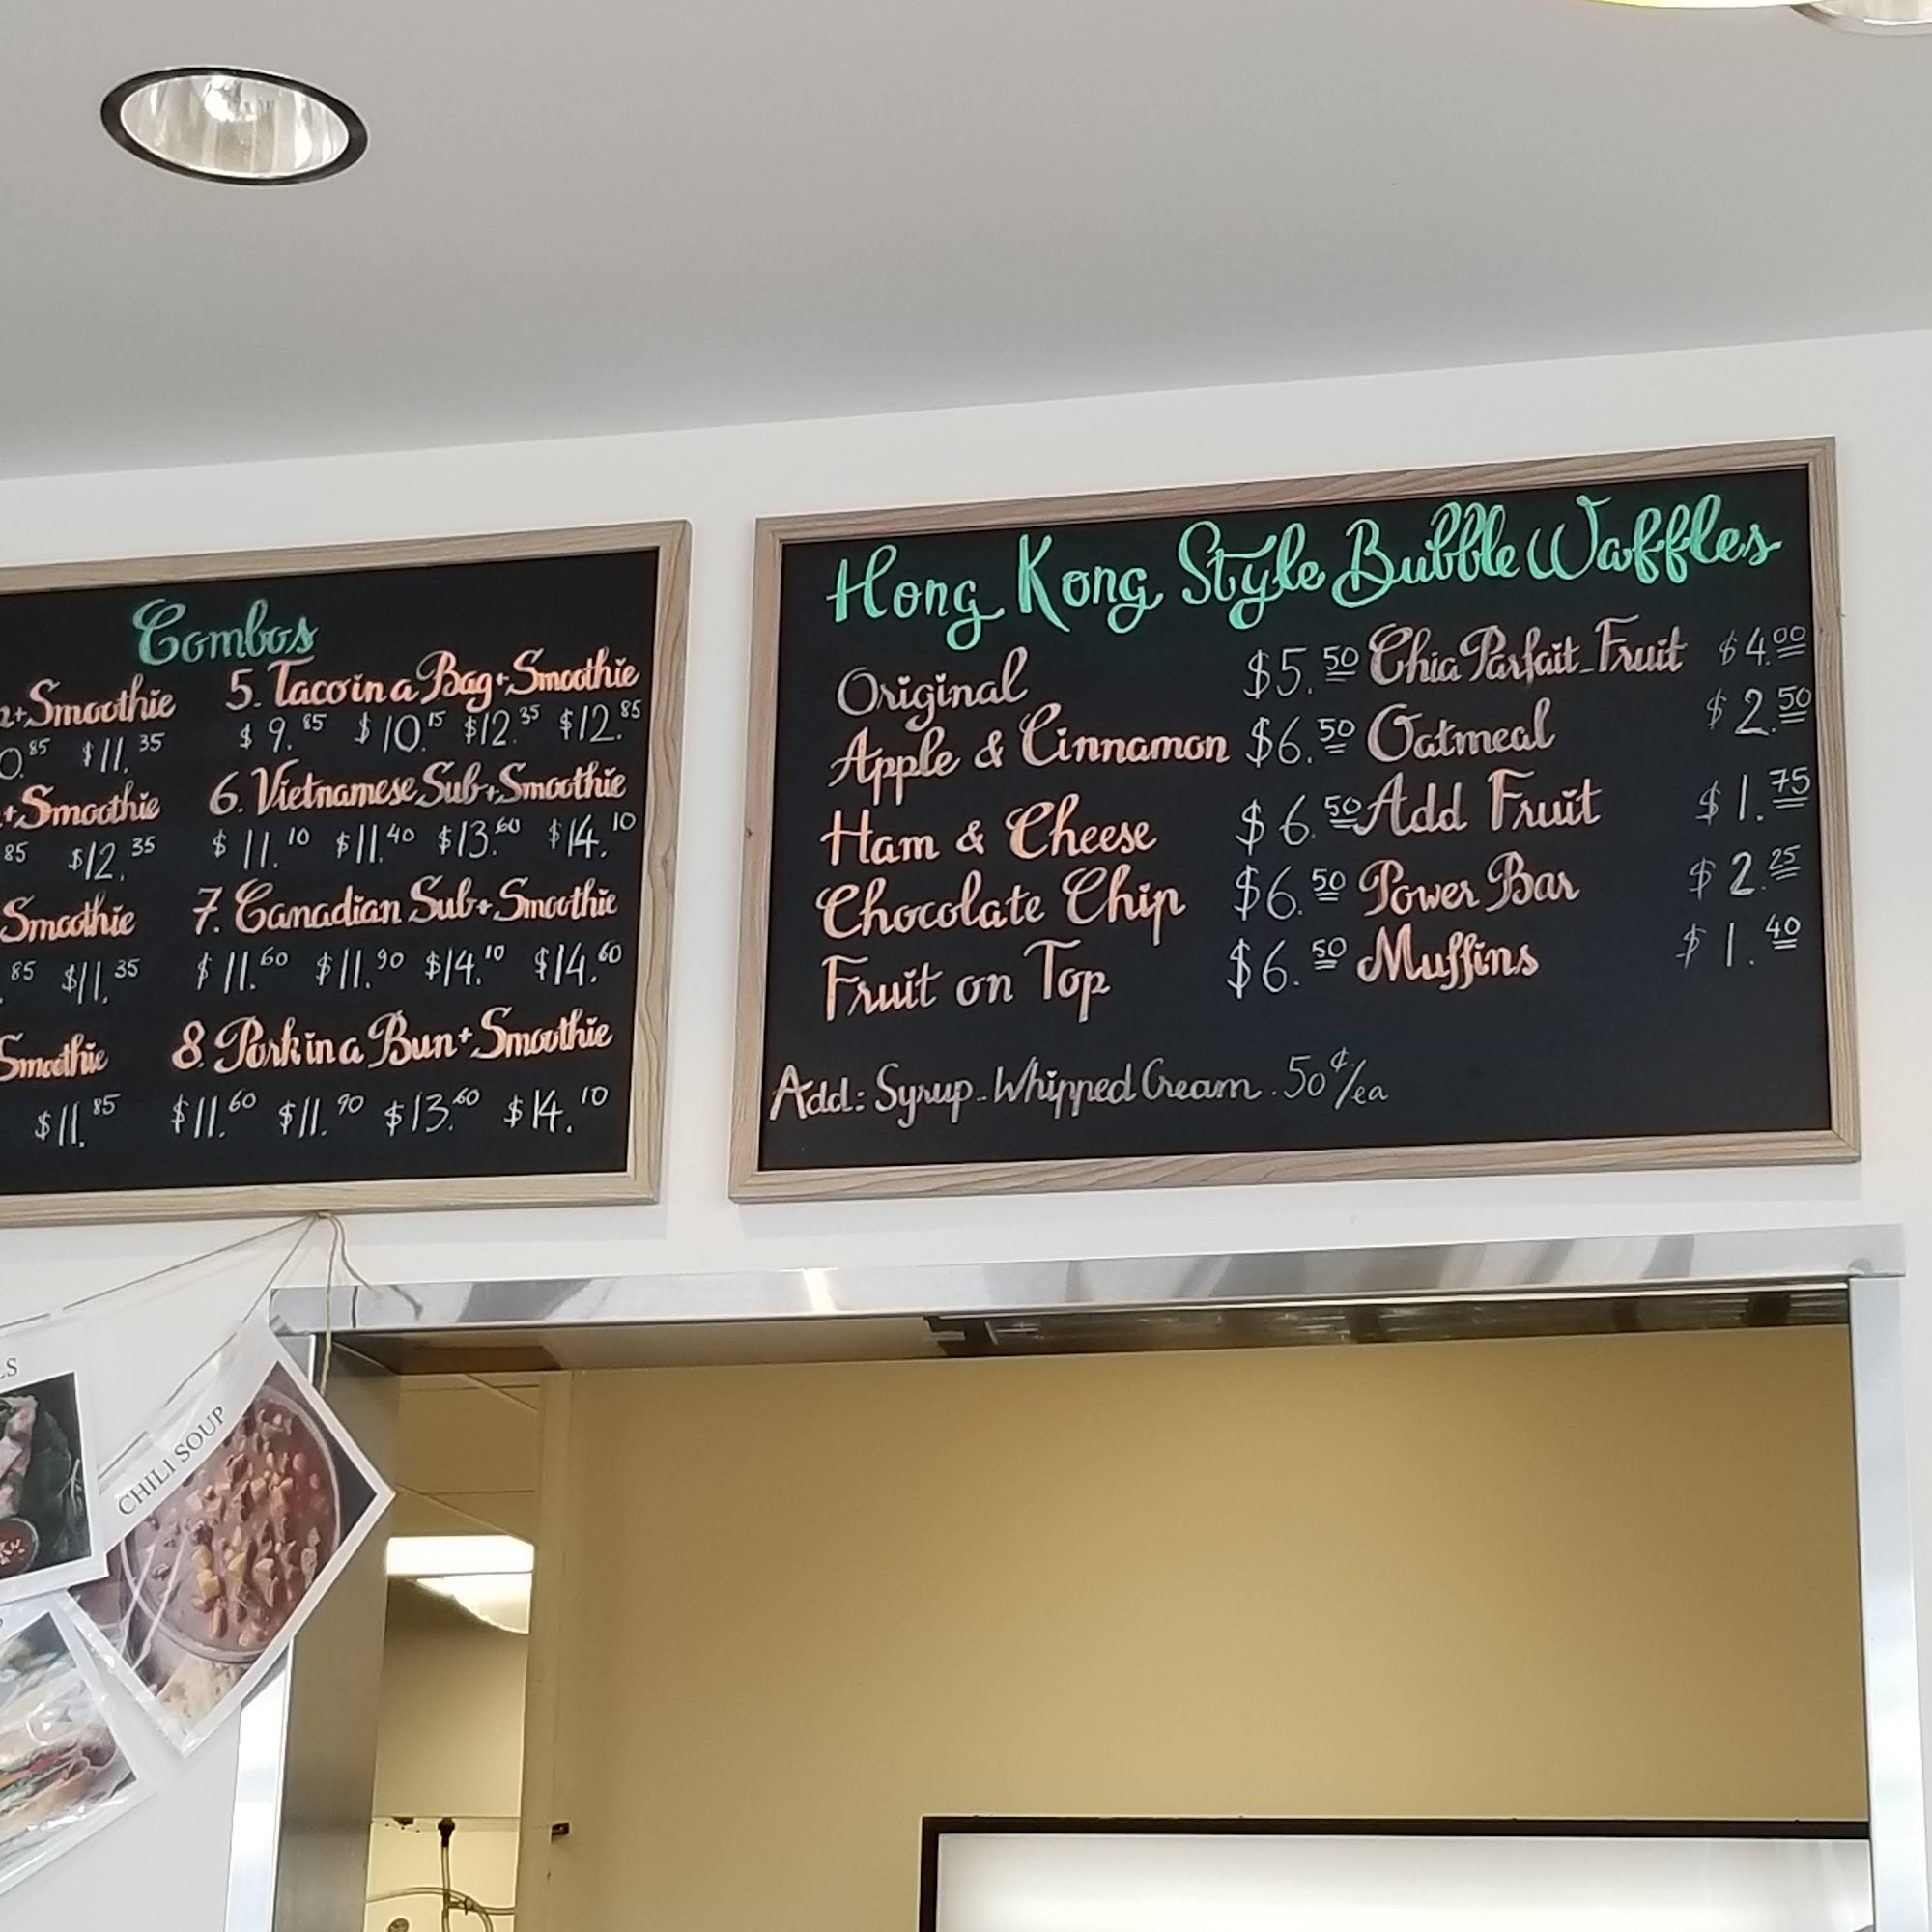 Combos
+Smoothie
$11.35
+Smoothie
85 $12.35
Smoothie
85 $11.35
Smoothie
$11.85
5. Taco in a Bag+Smoothie
$9.85 $10.15 $12.35 $12.85
6. Vietnamese Sub+Smoothie
$11.10 $11.40 $13.60 $14.10
7. Canadian Sub+Smoothie
$11.60 $11.90 $14.10 $14.60
8. Pork in a Bun+Smoothie
$11.60 $11.90 $13.60 $14.10
Hong Kong Style Bubble Waffles
Original $5.50
Apple & Cinnamon $6.50
Ham & Cheese $6.50
Chocolate Chip $6.50
Fruit on Top $6.50
Chia Parfait-Fruit $4.00
Oatmeal $2.50
Add Fruit $1.75
Power Bar $2.25
Muffins $1.40
Add: Syrup-Whipped Cream .50¢/ea
CHILI SOUP